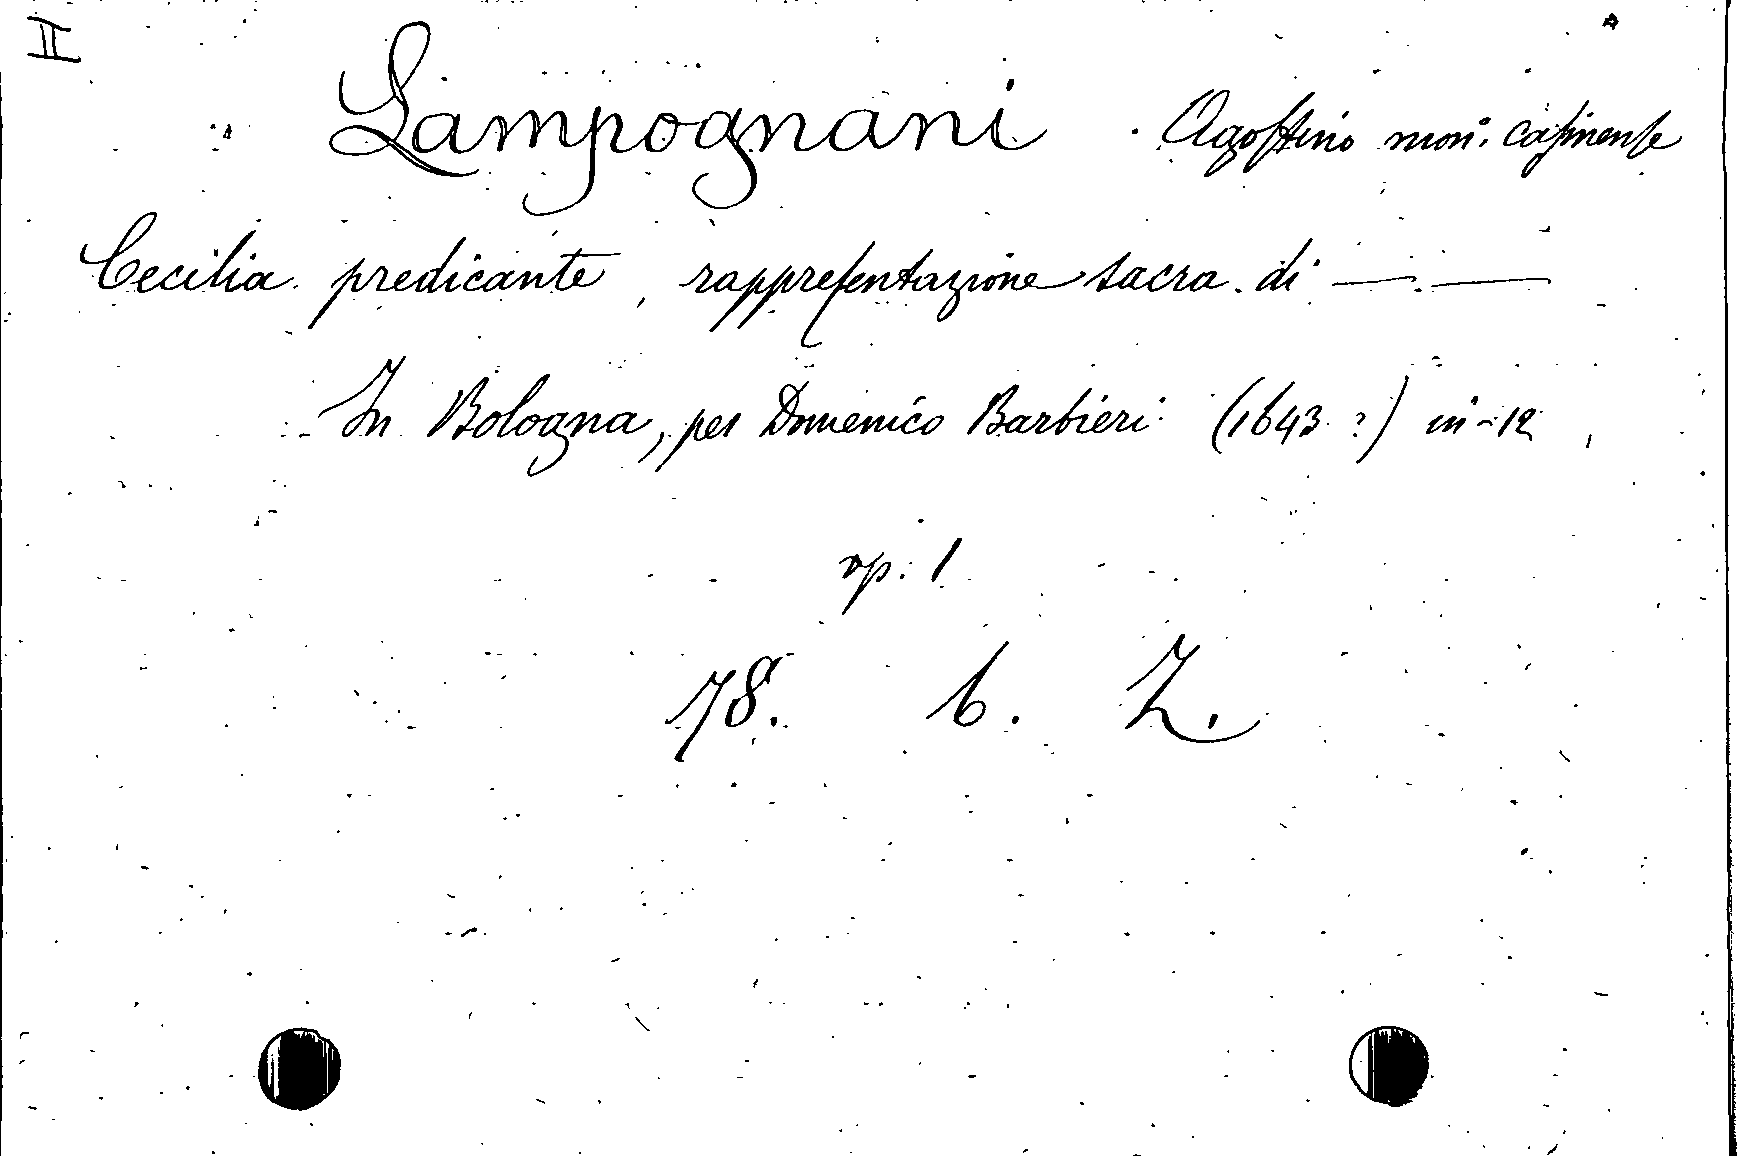 II
Lampognani Agostino mon. casinense
Cecilia predicante, rappresentazione sacra di — —
In Bologna, per Domenico Barbieri (1643?) in-12,
op. 1
78. 6. Z.